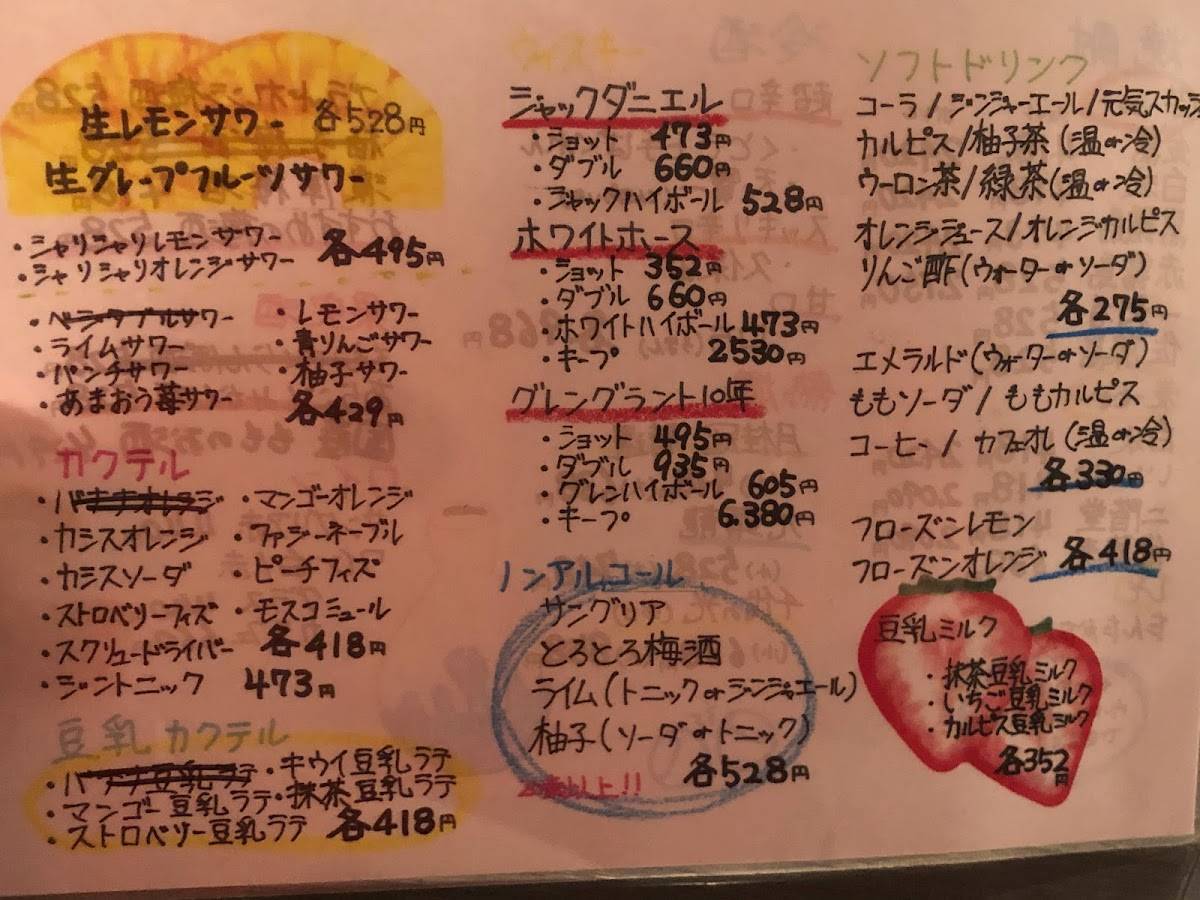 生レモンサワー 各528円
生グレープフルーツサワー
・シャリシャリレモンサワー 各495円
・シャリシャリオレンジサワー
・ベジタブルサワー ・レモンサワー
・ライムサワー ・青りんごサワー
・パンチサワー ・柚子サワー
・あまおう苺サワー 各429円
カクテル
・バナナオレンジ ・マンゴーオレンジ
・カシスオレンジ ・ファジーネーブル
・カシスソーダ ・ピーチフィズ
・ストロベリーフィズ ・モスコミュール
・スクリュードライバー 各418円
・ジントニック 473円
豆乳カクテル
・バナナ豆乳ラテ ・キウイ豆乳ラテ
・マンゴー豆乳ラテ ・抹茶豆乳ラテ
・ストロベリー豆乳ラテ 各418円
ウィスキー
ジャックダニエル
・ショット 473円
・ダブル 660円
・ジャックハイボール 528円
ホワイトホース
・ショット 352円
・ダブル 660円
・ホワイトハイボール 473円
・キープ 2530円
グレングラント10年
・ショット 495円
・ダブル 935円
・グレンハイボール 605円
・キープ 6.380円
ノンアルコール
サングリア
とろとろ梅酒
ライム(トニックorジンジャエール)
柚子(ソーダorトニック)
各528円
ソフトドリンク
コーラ/ジンジャーエール/元気スカッシ
カルピス/柚子茶(温or冷)
ウーロン茶/緑茶(温or冷)
オレンジジュース/オレンジカルピス
りんご酢(ウォーターorソーダ)
各275円
エメラルド(ウォーターorソーダ)
ももソーダ/ももカルピス
コーヒー/カフェオレ(温or冷)
各330円
フローズンレモン
フローズンオレンジ 各418円
豆乳ミルク
・抹茶豆乳ミルク
・いちご豆乳ミルク
・カルピス豆乳ミルク
各352円